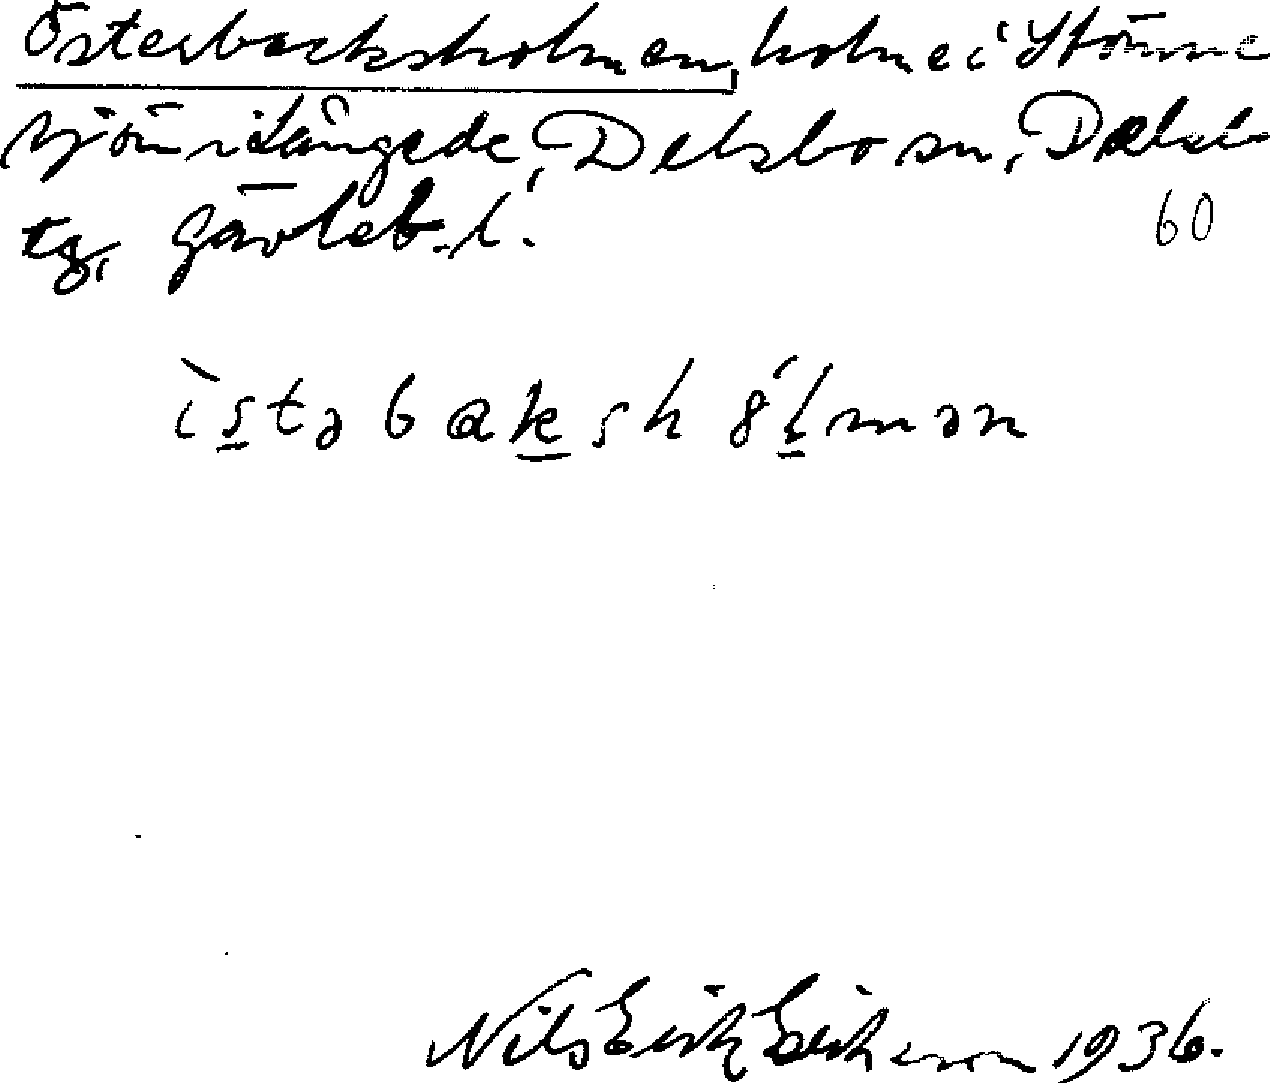 Österbacksholmen, holme i Stömne
sjön i Långede, Delsbo sn, Delsb
tg, Gävleb. l.
60
ìstəbakshólmən
Nils Erik Eriksson 1936.